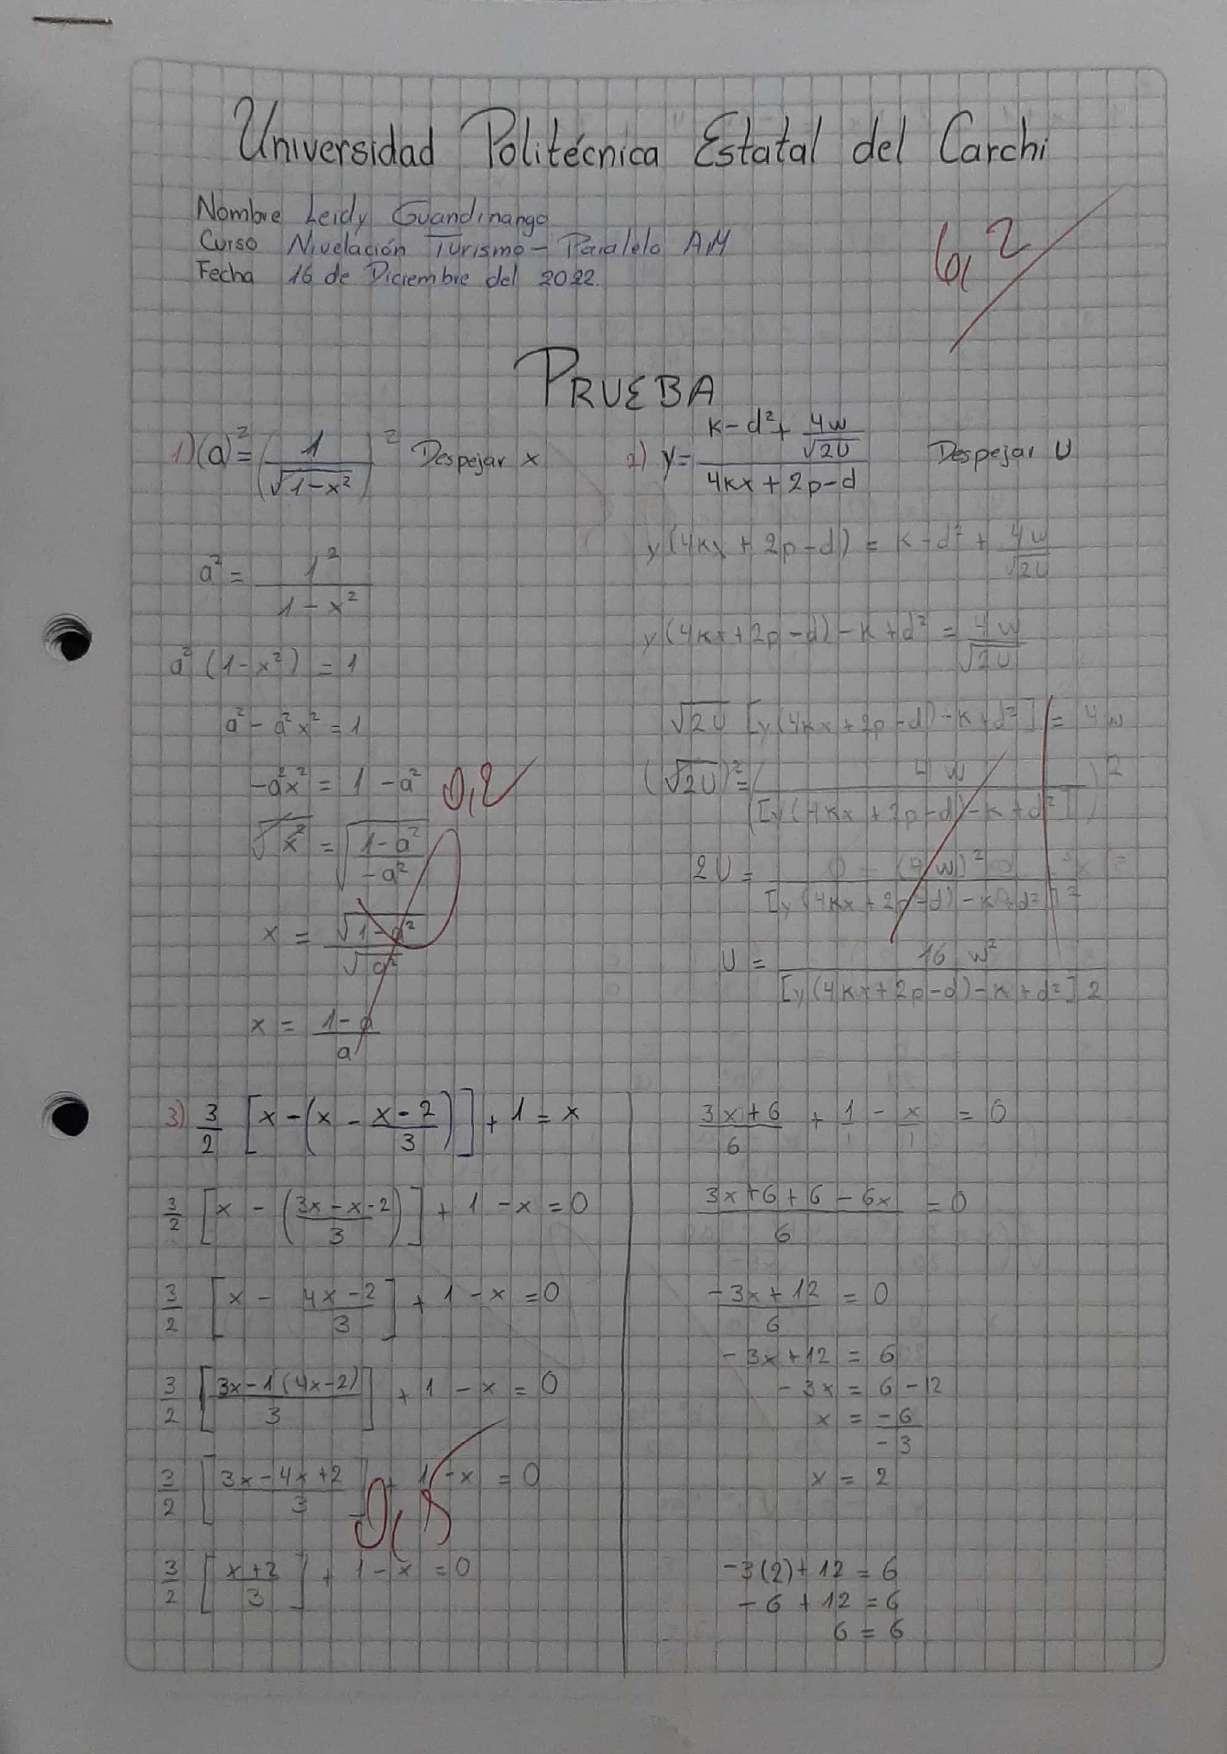 Universidad Politécnica Estatal del Carchi
Nombre Leidy Guandinango
Curso Nivelación Turismo - Paralelo AM
Fecha 16 de Diciembre del 2022.
6,2
PRUEBA
1) (a)² = (1/√(1-x²))² Despejar x
a² = 1²/(1-x²)
a² (1-x²) = 1
a² - a²x² = 1
-a²x² = 1 - a²
0,2
√x² = √((1-a²)/(-a²))
x = √(1-a²)/√a²
x = (1-a)/a
2) y = (k-d²+ 4w/√2U)/(4kx+2p-d) Despejar U
y(4kx + 2p-d) = k-d² + 4w/√2U
y(4kx+2p-d)-k+d² = 4w/√2U
√2U [y(4kx+2p-d)-k+d²] = 4w
(√2U)² = (4w/([y(4kx+2p-d)-k+d²]))²
2U = (4w)²/[y(4kx+2p-d)-k+d²]²
U = 16 w²/[y(4kx+2p-d)-k+d²] 2
3) 3/2 [x-(x - (x-2)/3)] + 1 = x
3/2 [x - ((3x-x-2)/3)] + 1 - x = 0
3/2 [x - (4x-2)/3] + 1 - x = 0
3/2 [(3x-1(4x-2))/3] + 1 - x = 0
3/2 [(3x-4x+2)/3] + 1 - x = 0
3/2 [(x+2)/3] + 1 - x = 0
(3x+6)/6 + 1/1 - x/1 = 0
(3x+6+6-6x)/6 = 0
(-3x+12)/6 = 0
-3x+12 = 6
-3x = 6-12
x = -6/-3
x = 2
-3(2)+12 = 6
-6 + 12 = 6
6 = 6